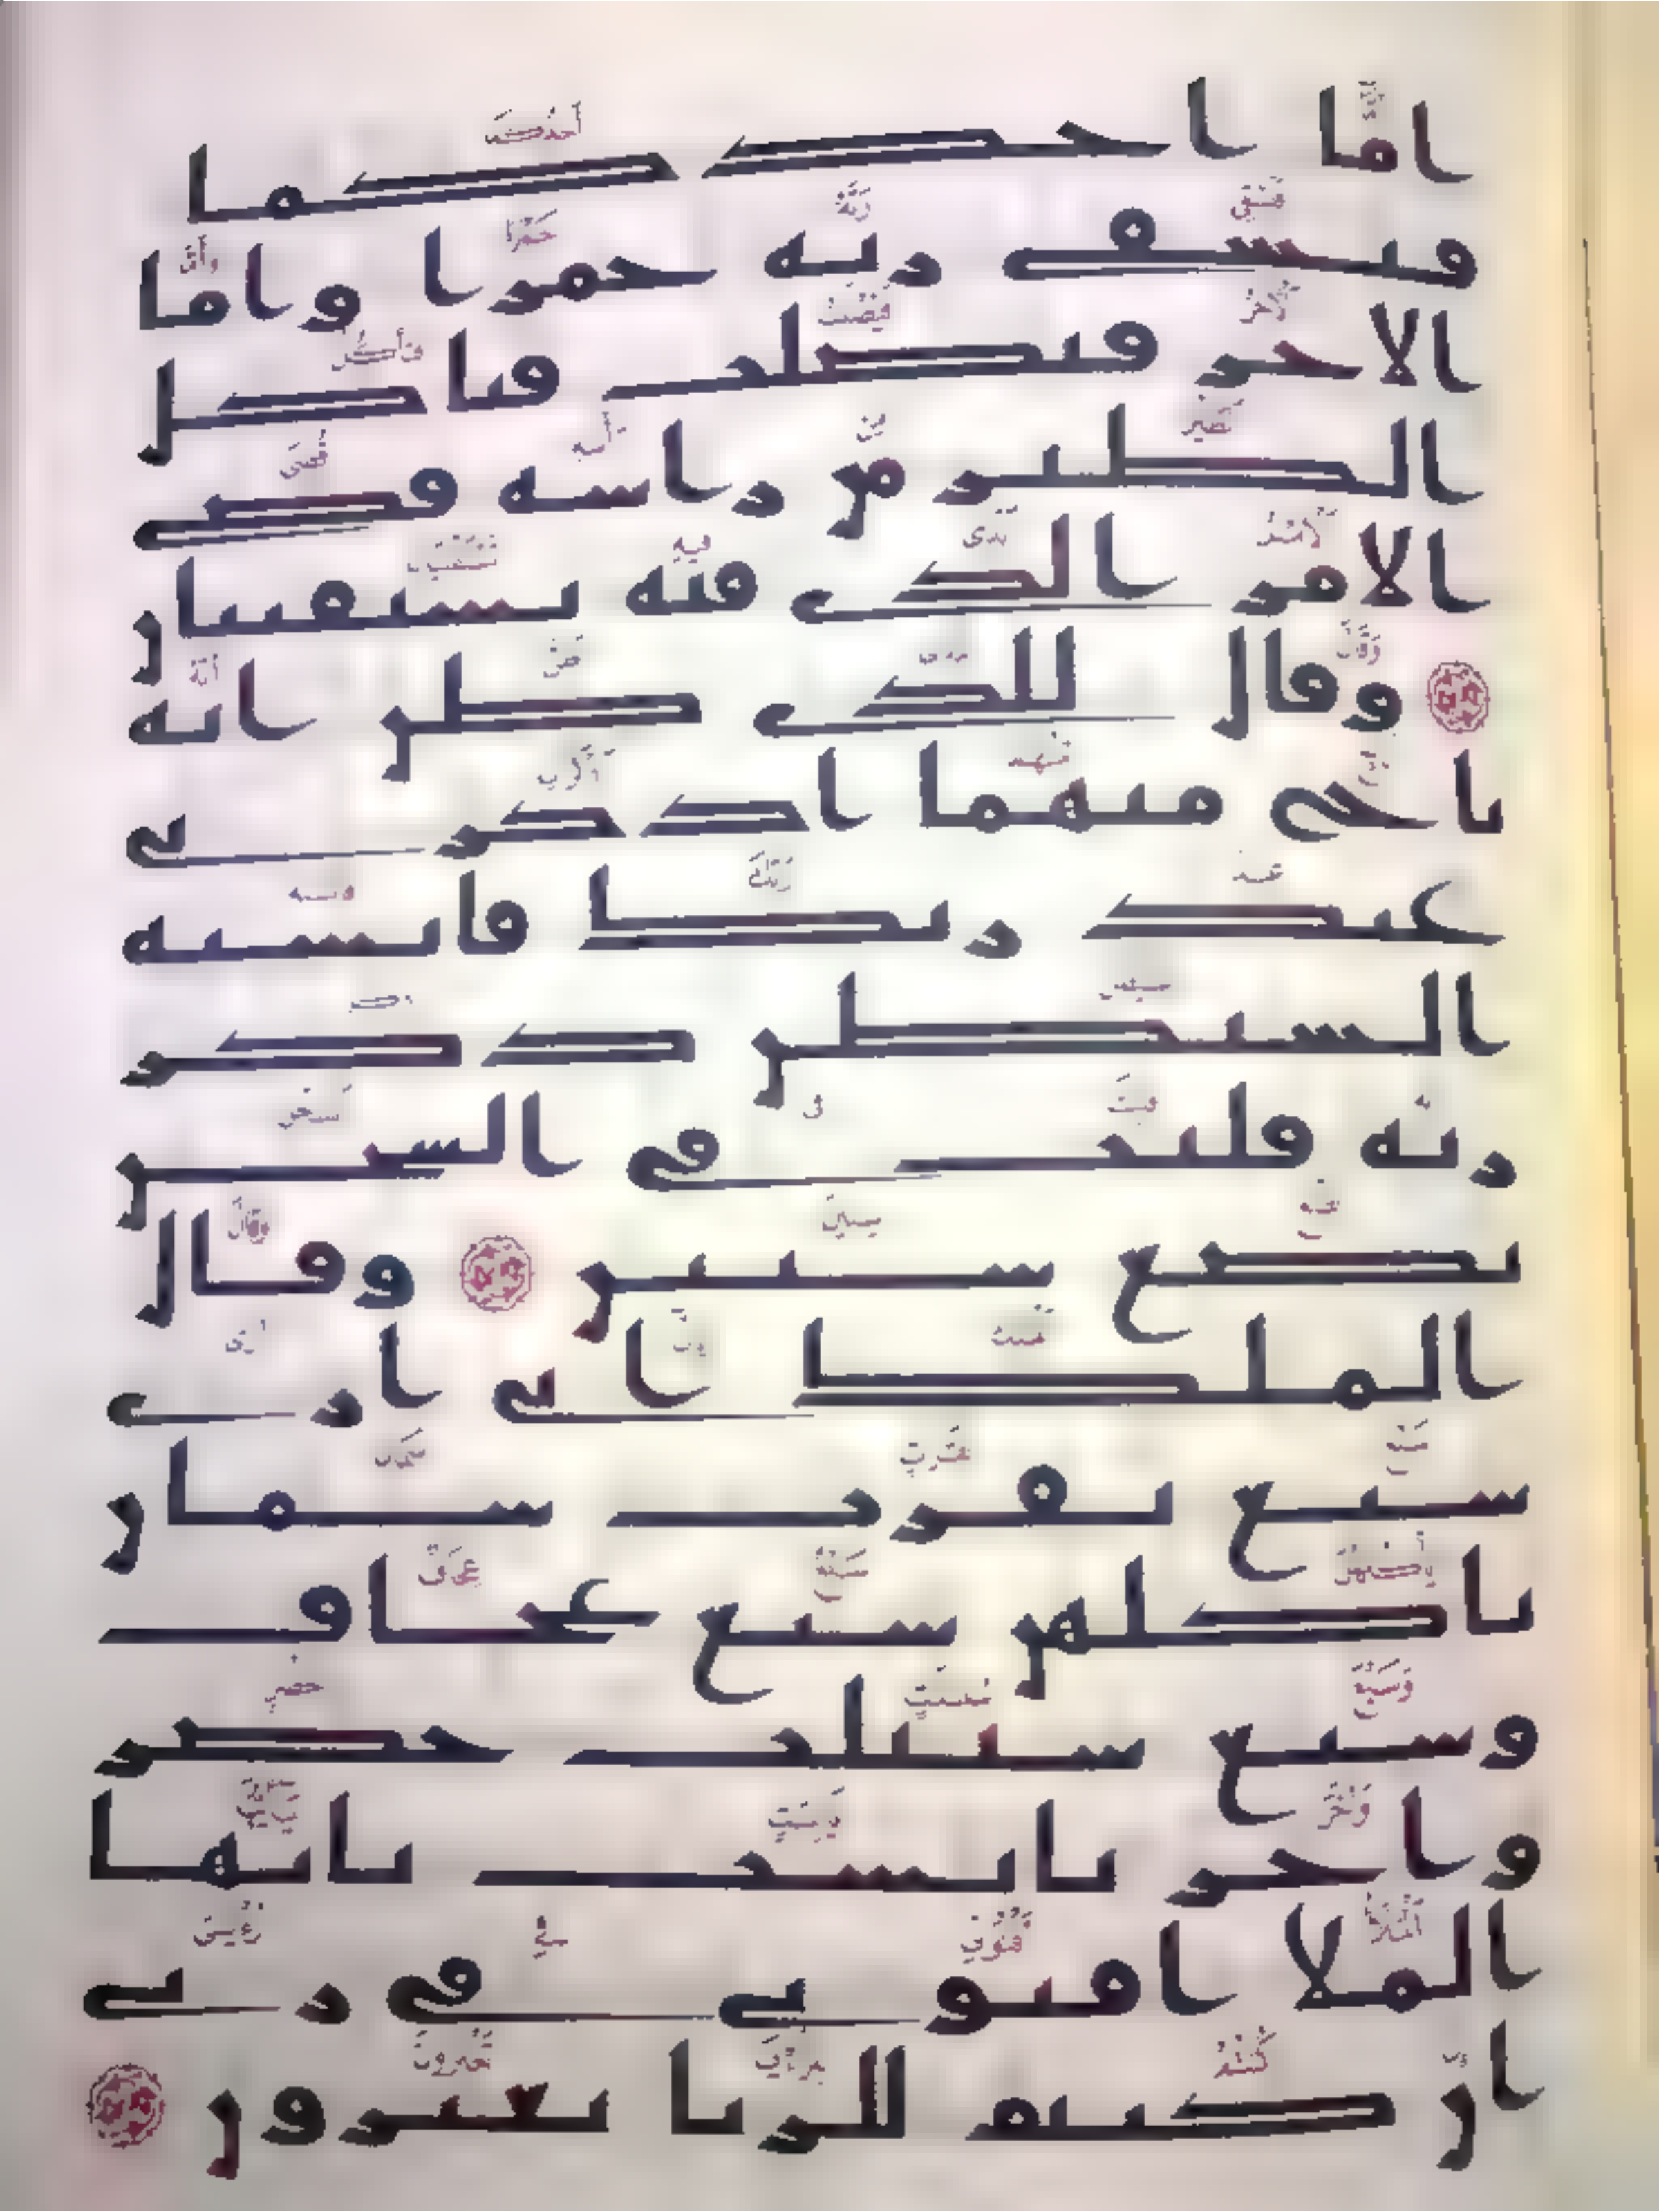 اما احدكما
فيسقى ربه خمرا واما
الاخر فيصلب فتاكل
الطير من راسه قضى
الامر الذى فيه تستفتيان
وقال للذى ظن انه
ناج منهما اذكرنى
عند ربك فانسيه
الشيطن ذكر
ربه فلبث فى السجن
بضع سنين وقال
الملك انى ارى
سبع بقرت سمان
ياكلهن سبع عجاف
وسبع سنبلت خضر
واخر يابست يايها
الملا افتونى فى ريى
ان كنتم للريا تعبرون